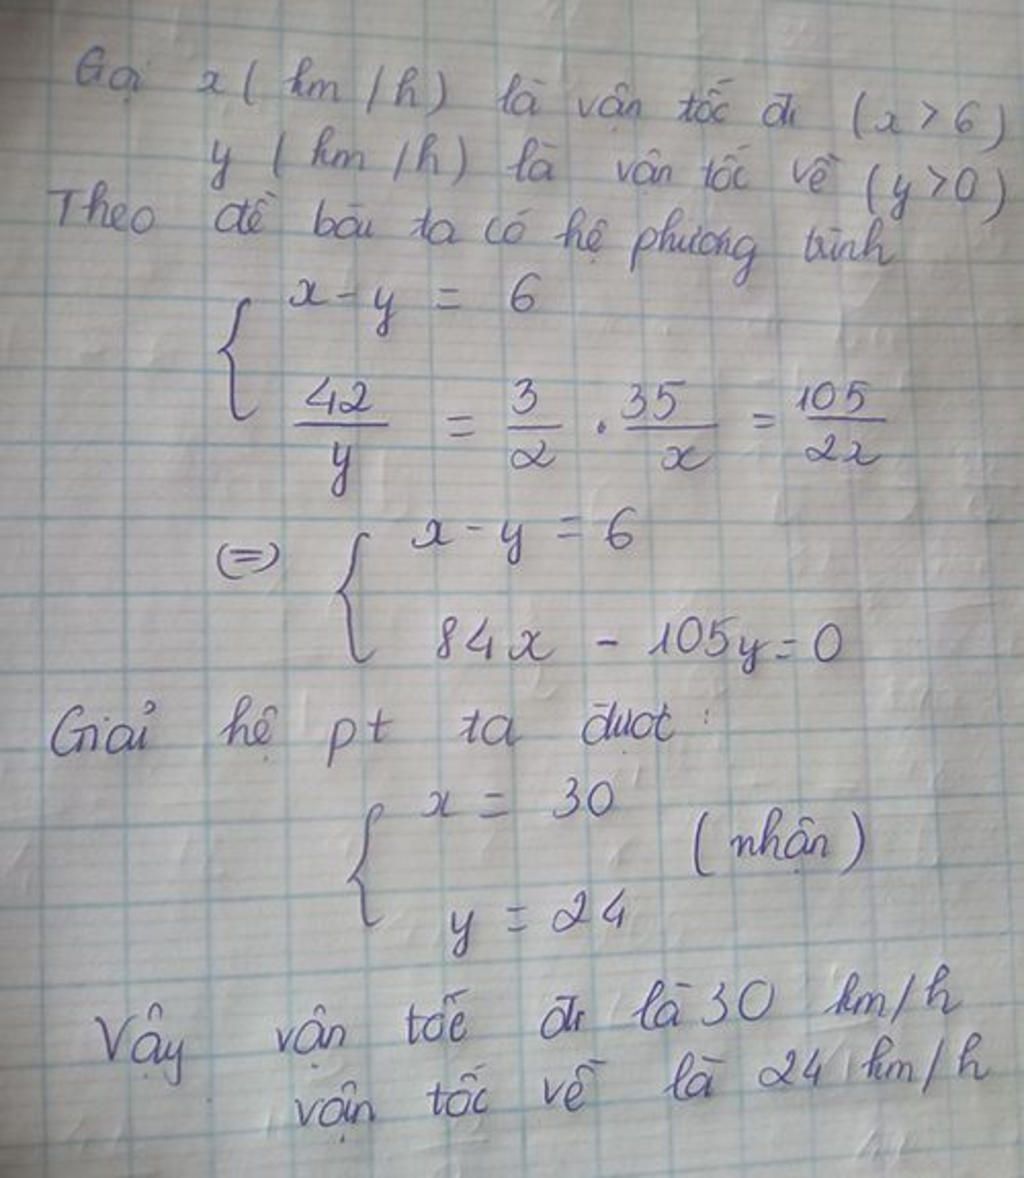 Gọi x ( km /h) là vận tốc đi (x > 6)
y ( km /h) là vận tốc về (y>0)
Theo đề bài ta có hệ phương trình
{ x - y = 6
42/y = 3/2 . 35/x = 105/2x
(=) { x - y = 6
84x - 105y = 0
Giải hệ pt ta được :
{ x = 30
(nhận)
y = 24
Vậy vận tốc đi là 30 km/h
vận tốc về là 24 km/h